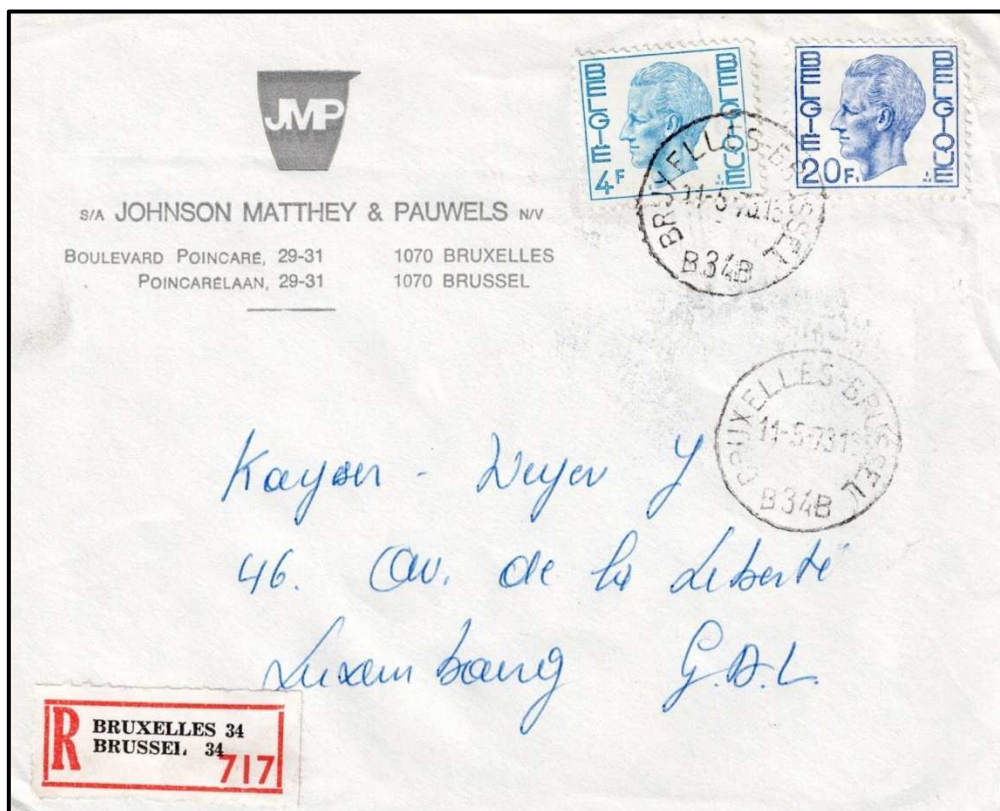 JMP
S/A JOHNSON MATTHEY & PAUWELS N/V
BOULEVARD POINCARÉ, 29-31 1070 BRUXELLES
POINCARÉLAAN, 29-31 1070 BRUSSEL
BELGIE BELGIQUE
4F
BELGIE BELGIQUE
20F
BRUXELLES-BRUSSEL
11-5-73 1
B34B
BRUXELLES-BRUSSEL
11-5-73 1
B34B
Kayser - Weyer J
46. Av. de la Liberté
Luxembourg G.D.L.
R
BRUXELLES 34
BRUSSEL 34
717